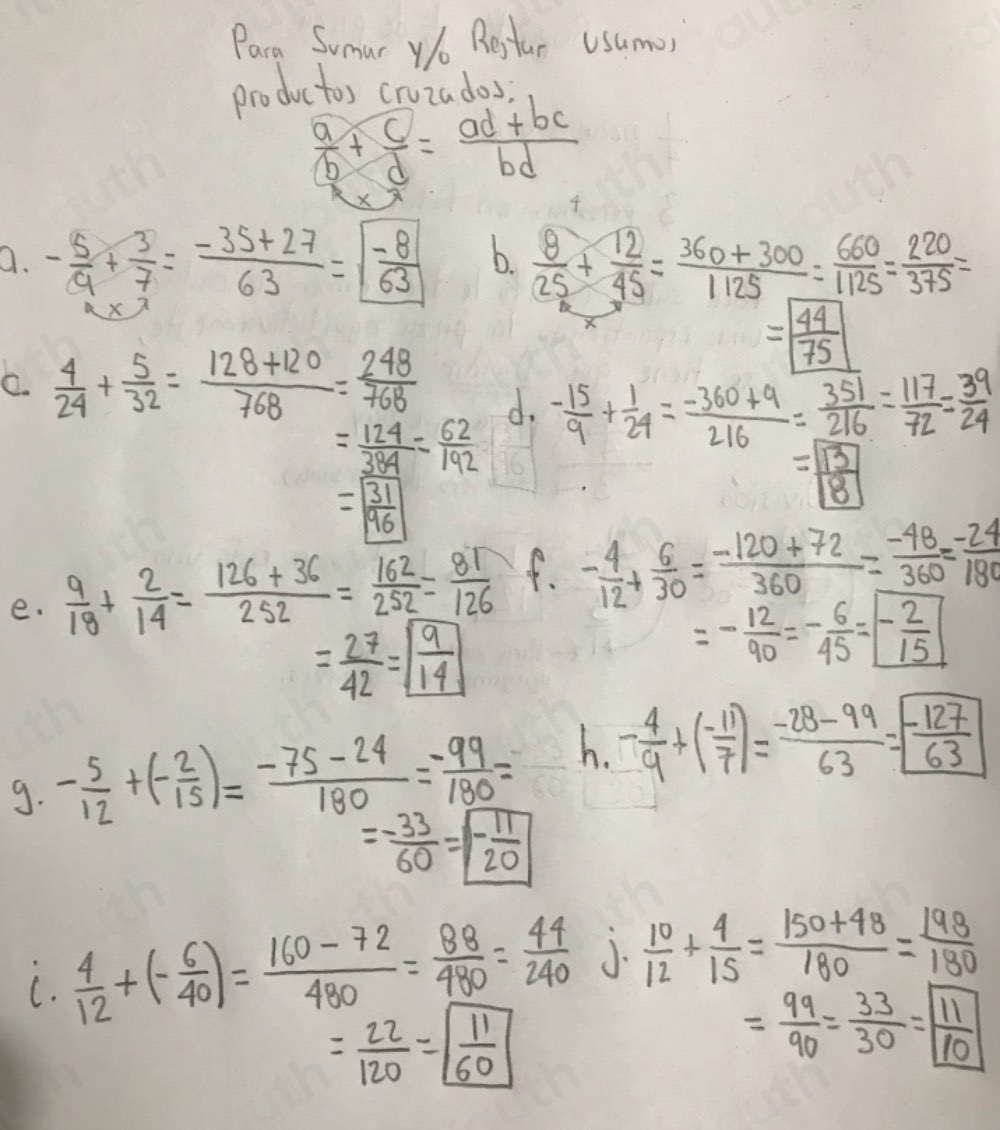 Para Sumar y/o Restar usamos
productos cruzados:
a/b + c/d = ad + bc/bd
x
a. -5/9 + 3/7 = -35+27/63 = -8/63
x
b. 8/25 + 12/45 = 360+300/1125 = 660/1125 = 220/375 =
x
= 44/75
c. 4/24 + 5/32 = 128+120/768 = 248/768
= 124/384 = 62/192
= 31/96
d. -15/9 + 1/24 = -360+9/216 = 351/216 = 117/72 = 39/24
= 13/8
e. 9/18 + 2/14 = 126+36/252 = 162/252 = 81/126
= 27/42 = 9/14
f. -4/12 + 6/30 = -120+72/360 = -48/360 = -24/180
= -12/90 = -6/45 = -2/15
g. -5/12 + (-2/15) = -75-24/180 = -99/180 =
= -33/60 = -11/20
h. -4/9 + (-11/7) = -28-99/63 = -127/63
i. 4/12 + (-6/40) = 160-72/480 = 88/480 = 44/240
= 22/120 = 11/60
j. 10/12 + 4/15 = 150+48/180 = 198/180
= 99/90 = 33/30 = 11/10